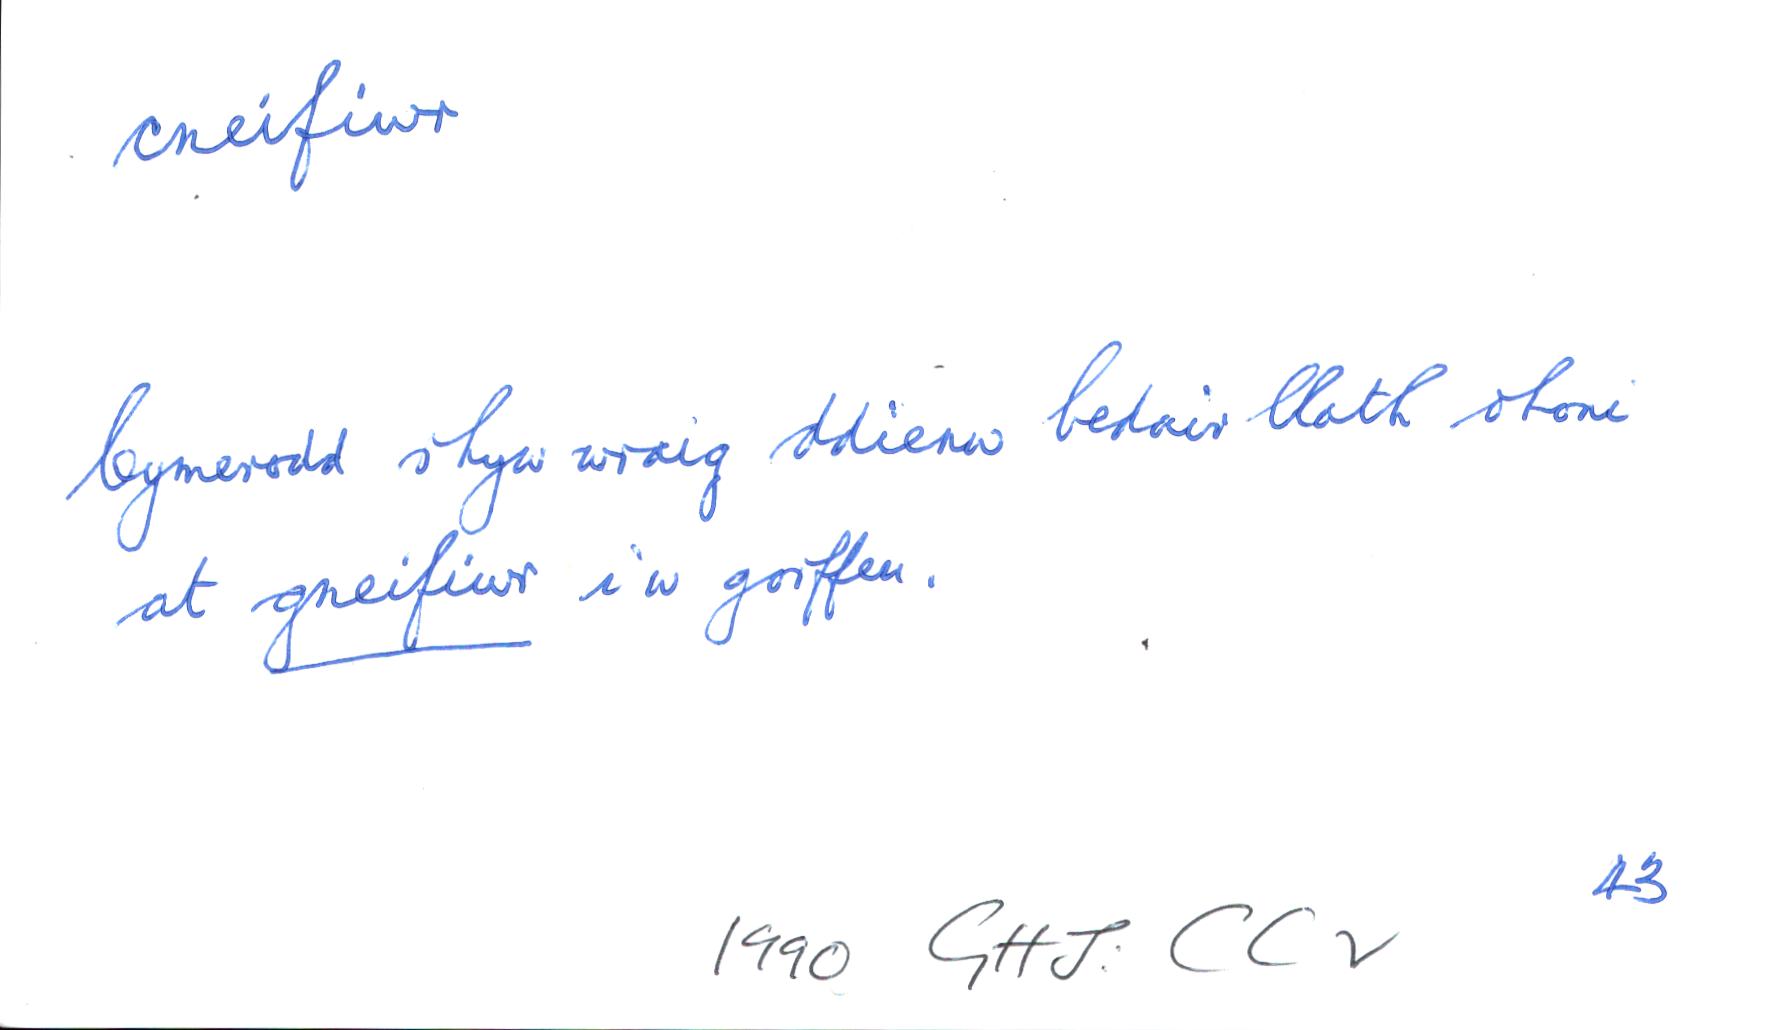 cneifiwr
Cymerodd rhyw wraig ddienw bedair llath ohoni
at gneifiwr i'w gorffen.
43
1990 GHJ: CCV